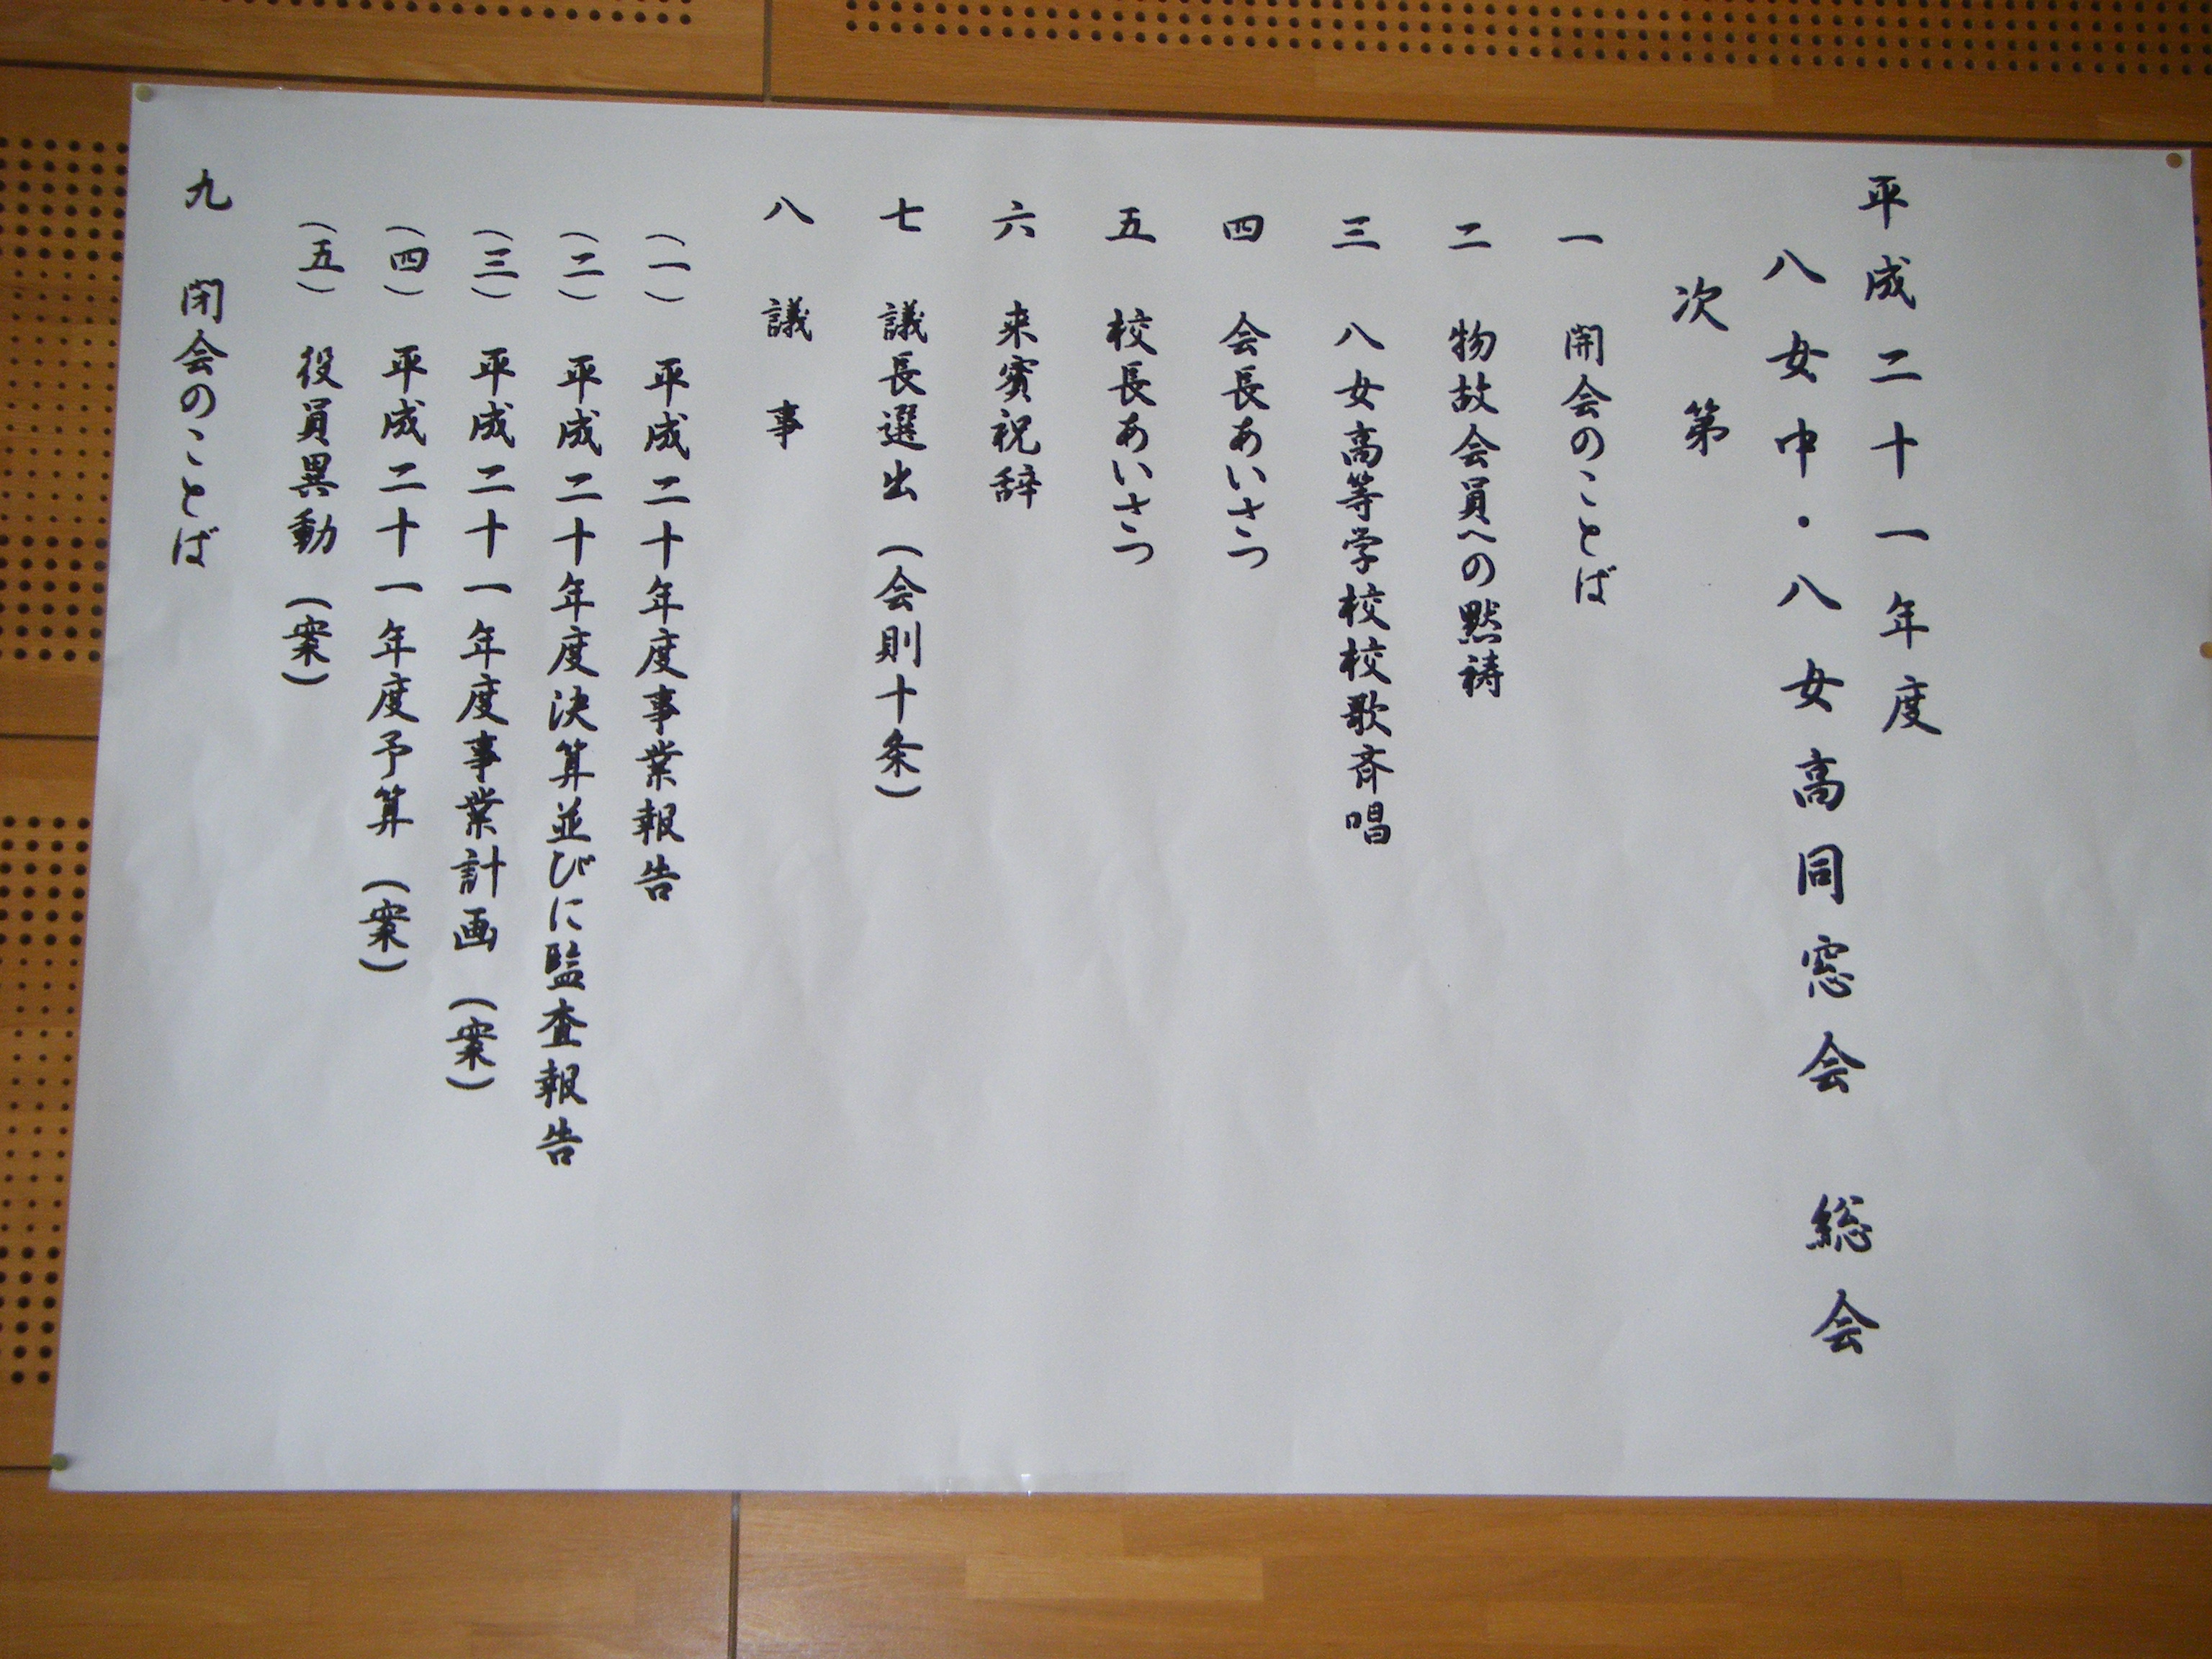 平成二十一年度
八女中・八女高同窓会 総会
次第
一 開会のことば
二 物故会員への黙祷
三 八女高等学校校歌斉唱
四 会長あいさつ
五 校長あいさつ
六 来賓祝辞
七 議長選出（会則十条）
八 議事
（一） 平成二十年度事業報告
（二） 平成二十年度決算並びに監査報告
（三） 平成二十一年度事業計画（案）
（四） 平成二十一年度予算（案）
（五） 役員異動（案）
九 閉会のことば